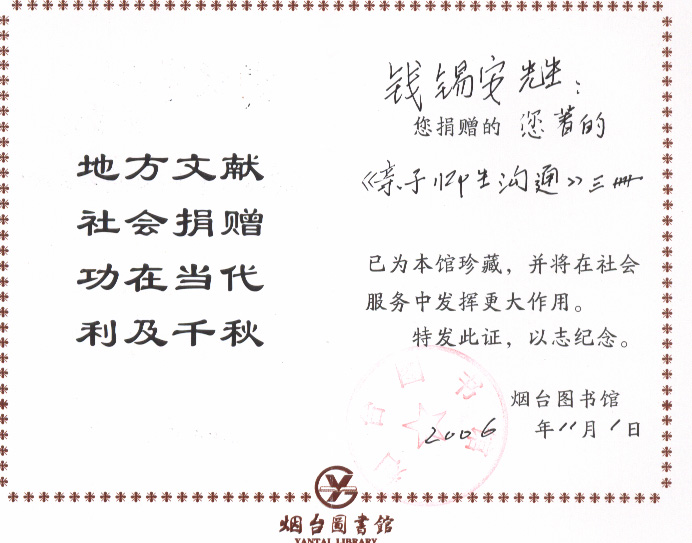 地方文献
社会捐赠
功在当代
利及千秋
钱锡安先生：
您捐赠的 您著的
《亲子师生沟通》三册
已为本馆珍藏，并将在社会
服务中发挥更大作用。
特发此证，以志纪念。
烟台图书馆
2006年11月1日
烟台圖書館
YANTAI LIBRARY